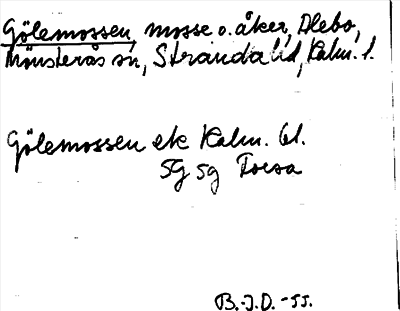 Gölemossen, mosse o. åker, Dlebo,
Mönsterås sn, Stranda hd, Kalm. l.
Gölemossen ek Kalm. 61.
5G 5g Torsa
B.-J.D. -55.